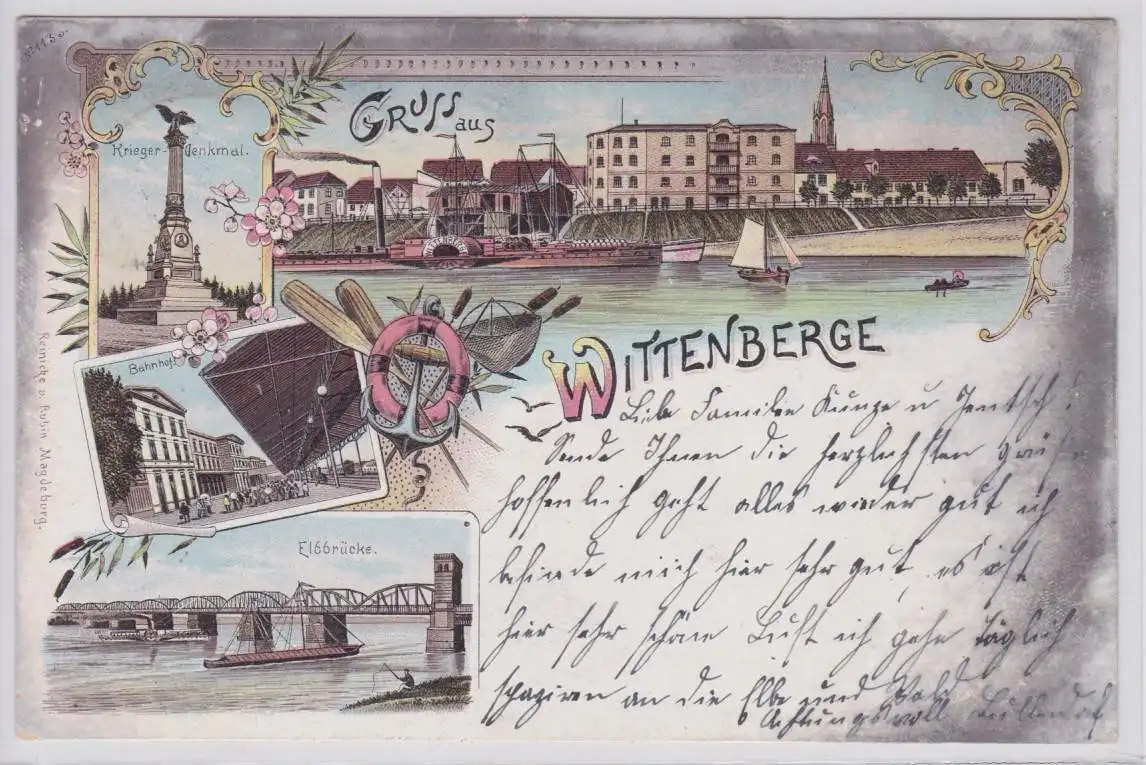 GRUSS aus
Krieger-denkmal.
WITTENBERGE
Bahnhof.
Reinicke u. Rubin Magdeburg.
Elbbrücke.
Liebe Familien Kunze u Jentsch!
Sende Ihnen die herzlichsten Grüße
hoffenlich geht alles wieder gut ich
befinde mich hier sehr gut, es ist
hier sehr schöne Luft ich gehe täglich
spaziren an die Elbe und Wald
Achtungsvoll